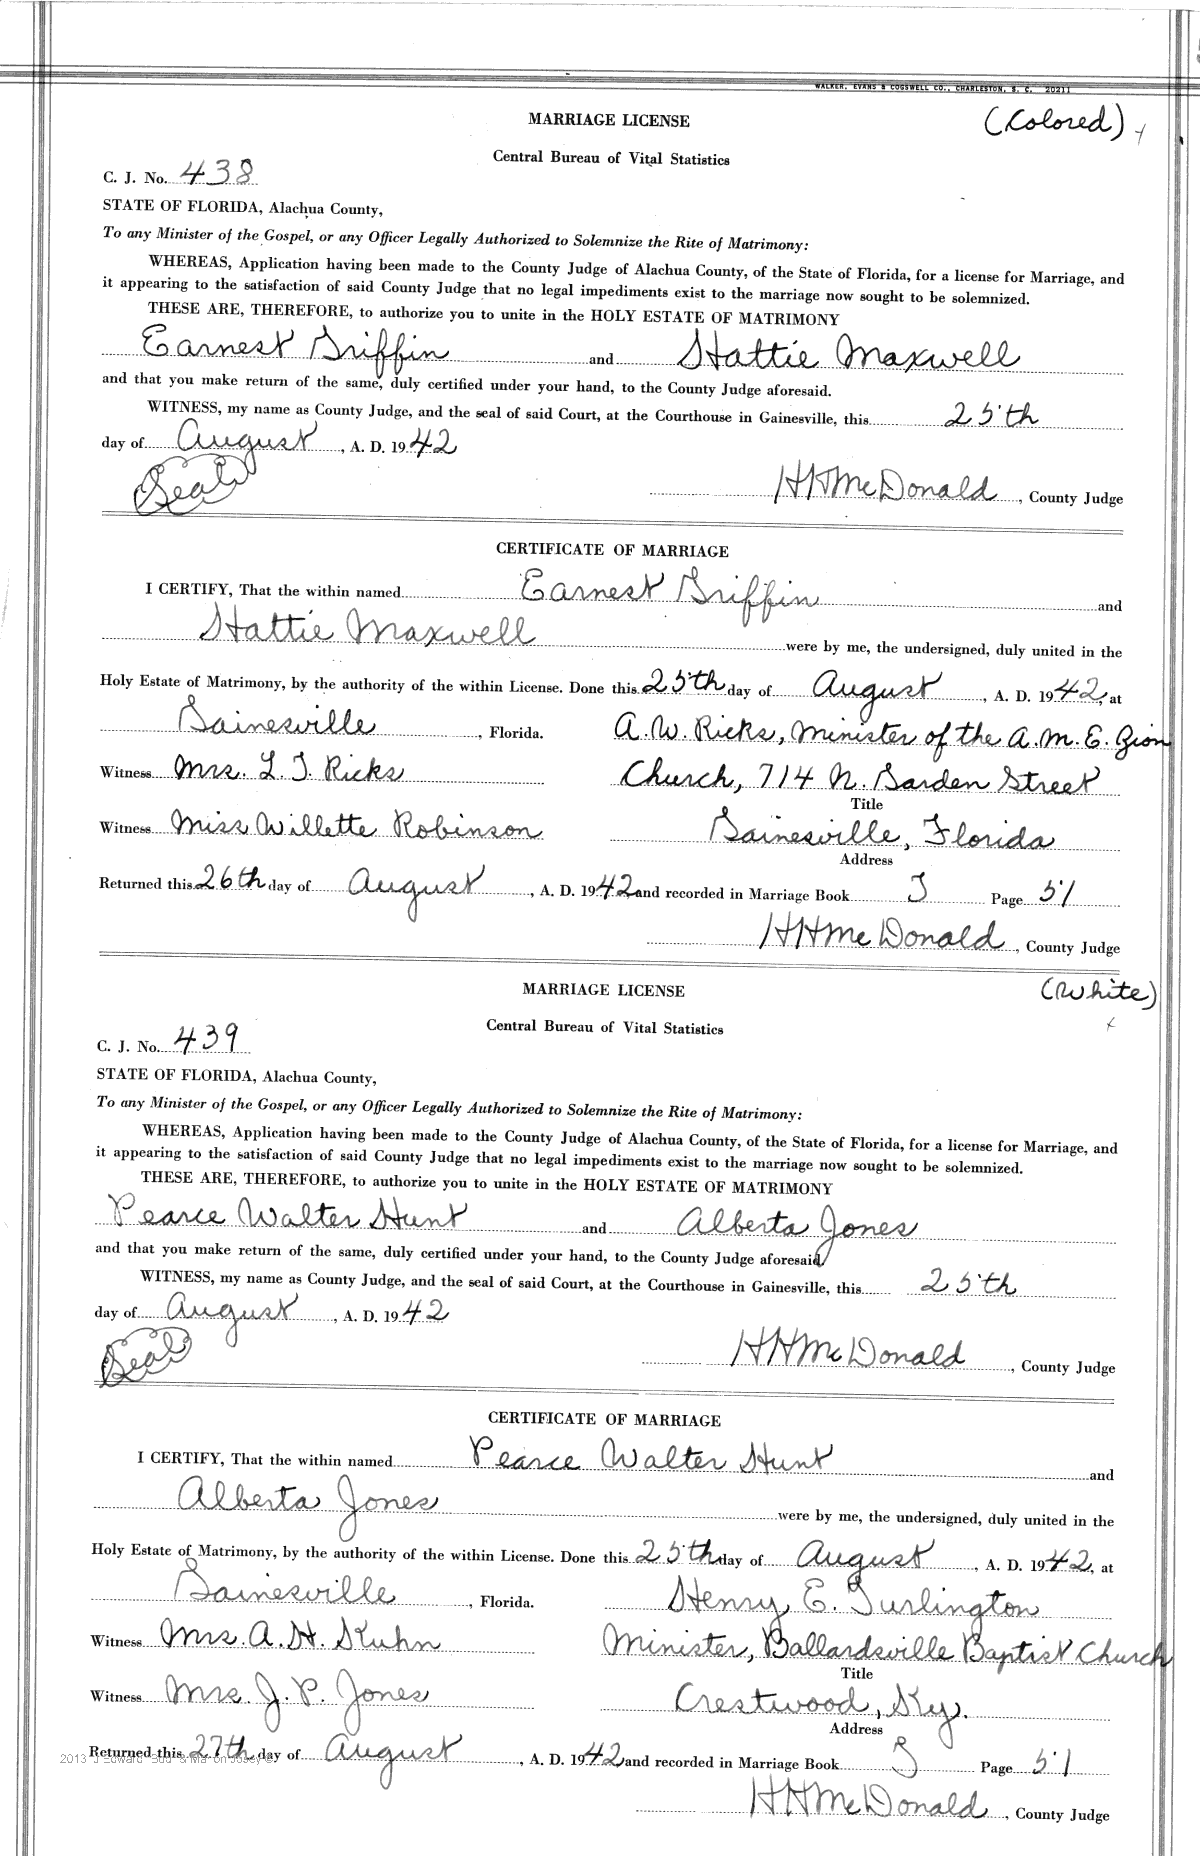 WALKER, EVANS & COGSWELL CO., CHARLESTON, S. C. 20211
MARRIAGE LICENSE
(Colored)
Central Bureau of Vital Statistics
C. J. No. 438
STATE OF FLORIDA, Alachua County,
To any Minister of the Gospel, or any Officer Legally Authorized to Solemnize the Rite of Matrimony:
WHEREAS, Application having been made to the County Judge of Alachua County, of the State of Florida, for a license for Marriage, and
it appearing to the satisfaction of said County Judge that no legal impediments exist to the marriage now sought to be solemnized.
THESE ARE, THEREFORE, to authorize you to unite in the HOLY ESTATE OF MATRIMONY
Earnest Griffin and Hattie Maxwell
and that you make return of the same, duly certified under your hand, to the County Judge aforesaid.
WITNESS, my name as County Judge, and the seal of said Court, at the Courthouse in Gainesville, this 25th
day of August, A. D. 1942
(Seal)
HHMcDonald, County Judge
CERTIFICATE OF MARRIAGE
I CERTIFY, That the within named Earnest Griffin and
Hattie Maxwell were by me, the undersigned, duly united in the
Holy Estate of Matrimony, by the authority of the within License. Done this 25th day of August, A. D. 1942, at
Gainesville, Florida. A. W. Ricks, Minister of the A. M. E. Zion
Witness Mrs. L. T. Ricks Church, 714 N. Garden Street
Title
Witness Miss Willette Robinson Gainesville, Florida
Address
Returned this 26th day of August, A. D. 1942 and recorded in Marriage Book Page 51
HHMcDonald, County Judge
MARRIAGE LICENSE
(White)
Central Bureau of Vital Statistics
C. J. No. 439
STATE OF FLORIDA, Alachua County,
To any Minister of the Gospel, or any Officer Legally Authorized to Solemnize the Rite of Matrimony:
WHEREAS, Application having been made to the County Judge of Alachua County, of the State of Florida, for a license for Marriage, and
it appearing to the satisfaction of said County Judge that no legal impediments exist to the marriage now sought to be solemnized.
THESE ARE, THEREFORE, to authorize you to unite in the HOLY ESTATE OF MATRIMONY
Pearce Walter Hunt and Alberta Jones
and that you make return of the same, duly certified under your hand, to the County Judge aforesaid
WITNESS, my name as County Judge, and the seal of said Court, at the Courthouse in Gainesville, this 25th
day of August, A. D. 1942
(Seal)
HHMcDonald, County Judge
CERTIFICATE OF MARRIAGE
I CERTIFY, That the within named Pearce Walter Hunt and
Alberta Jones were by me, the undersigned, duly united in the
Holy Estate of Matrimony, by the authority of the within License. Done this 25th day of August, A. D. 1942, at
Gainesville, Florida. Henry E. Turlington
Witness Mrs. A. H. Kuhn Minister, Ballardsville Baptist Church
Title
Witness Mrs. J. P. Jones Crestwood, Ky.
Address
Returned this 27th day of August, A. D. 1942 and recorded in Marriage Book Page 51
HHMcDonald, County Judge